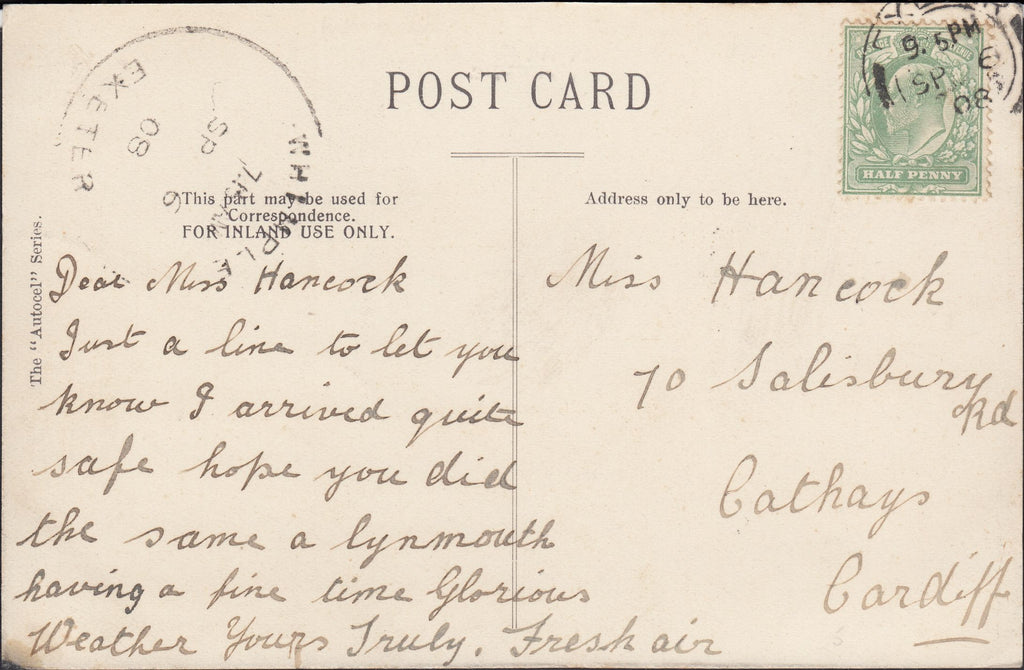 POST CARD
WHIMPLE
EXETER
7.15
SP 6
08
EXETER
9.5PM
SP 6
08
HALF PENNY
The "Autocel" Series.
This part may be used for
Correspondence.
FOR INLAND USE ONLY.
Address only to be here.
Dear Miss Hancock
Just a line to let you
know I arrived quite
safe hope you did
the same a lynmouth
having a fine time Glorious
Weather Yours Truly. Fresh air
Miss Hancock
70 Salisbury
Rd
Cathays
Cardiff